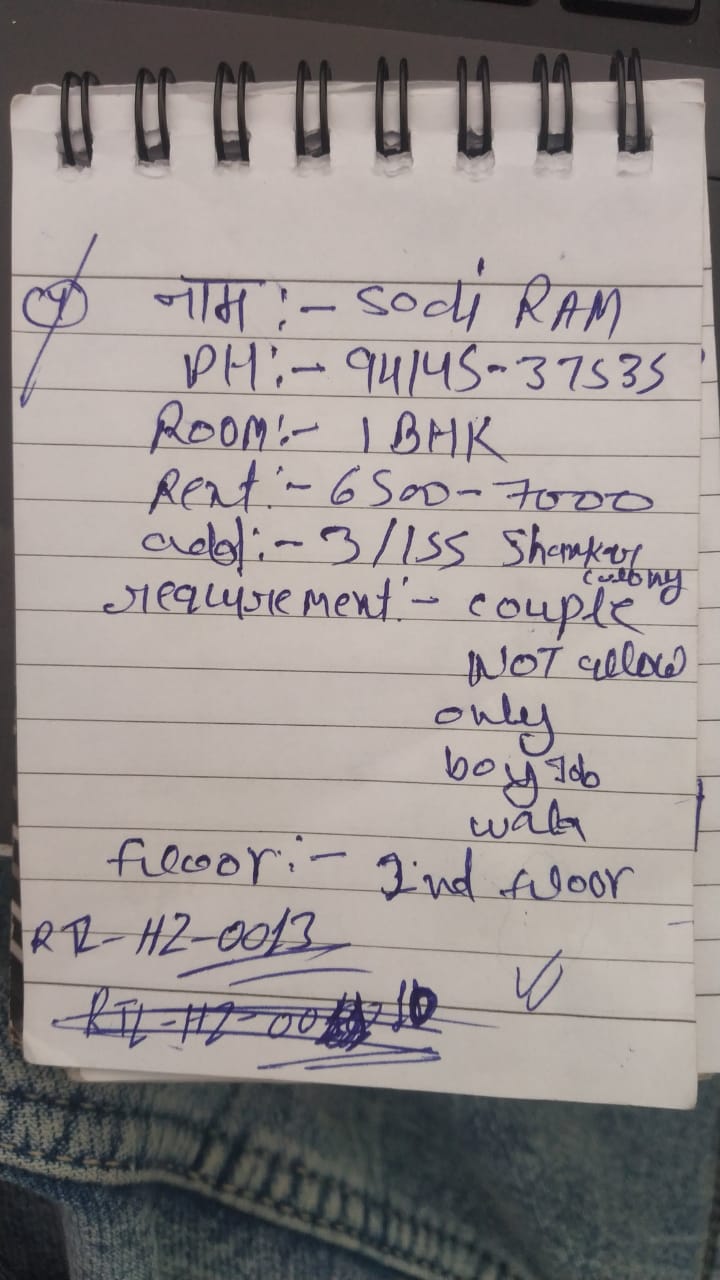 नाम :- Sodi RAM
PH :- 94145-37535
ROOM :- 1 BHK
Rent :- 6500-7000
add :- 3/155 Shankar
colony
requirement :- couple
NOT allow
only
boy Job
wala
floor :- 2nd floor
RTL-HZ-0013
RTL-HZ-00